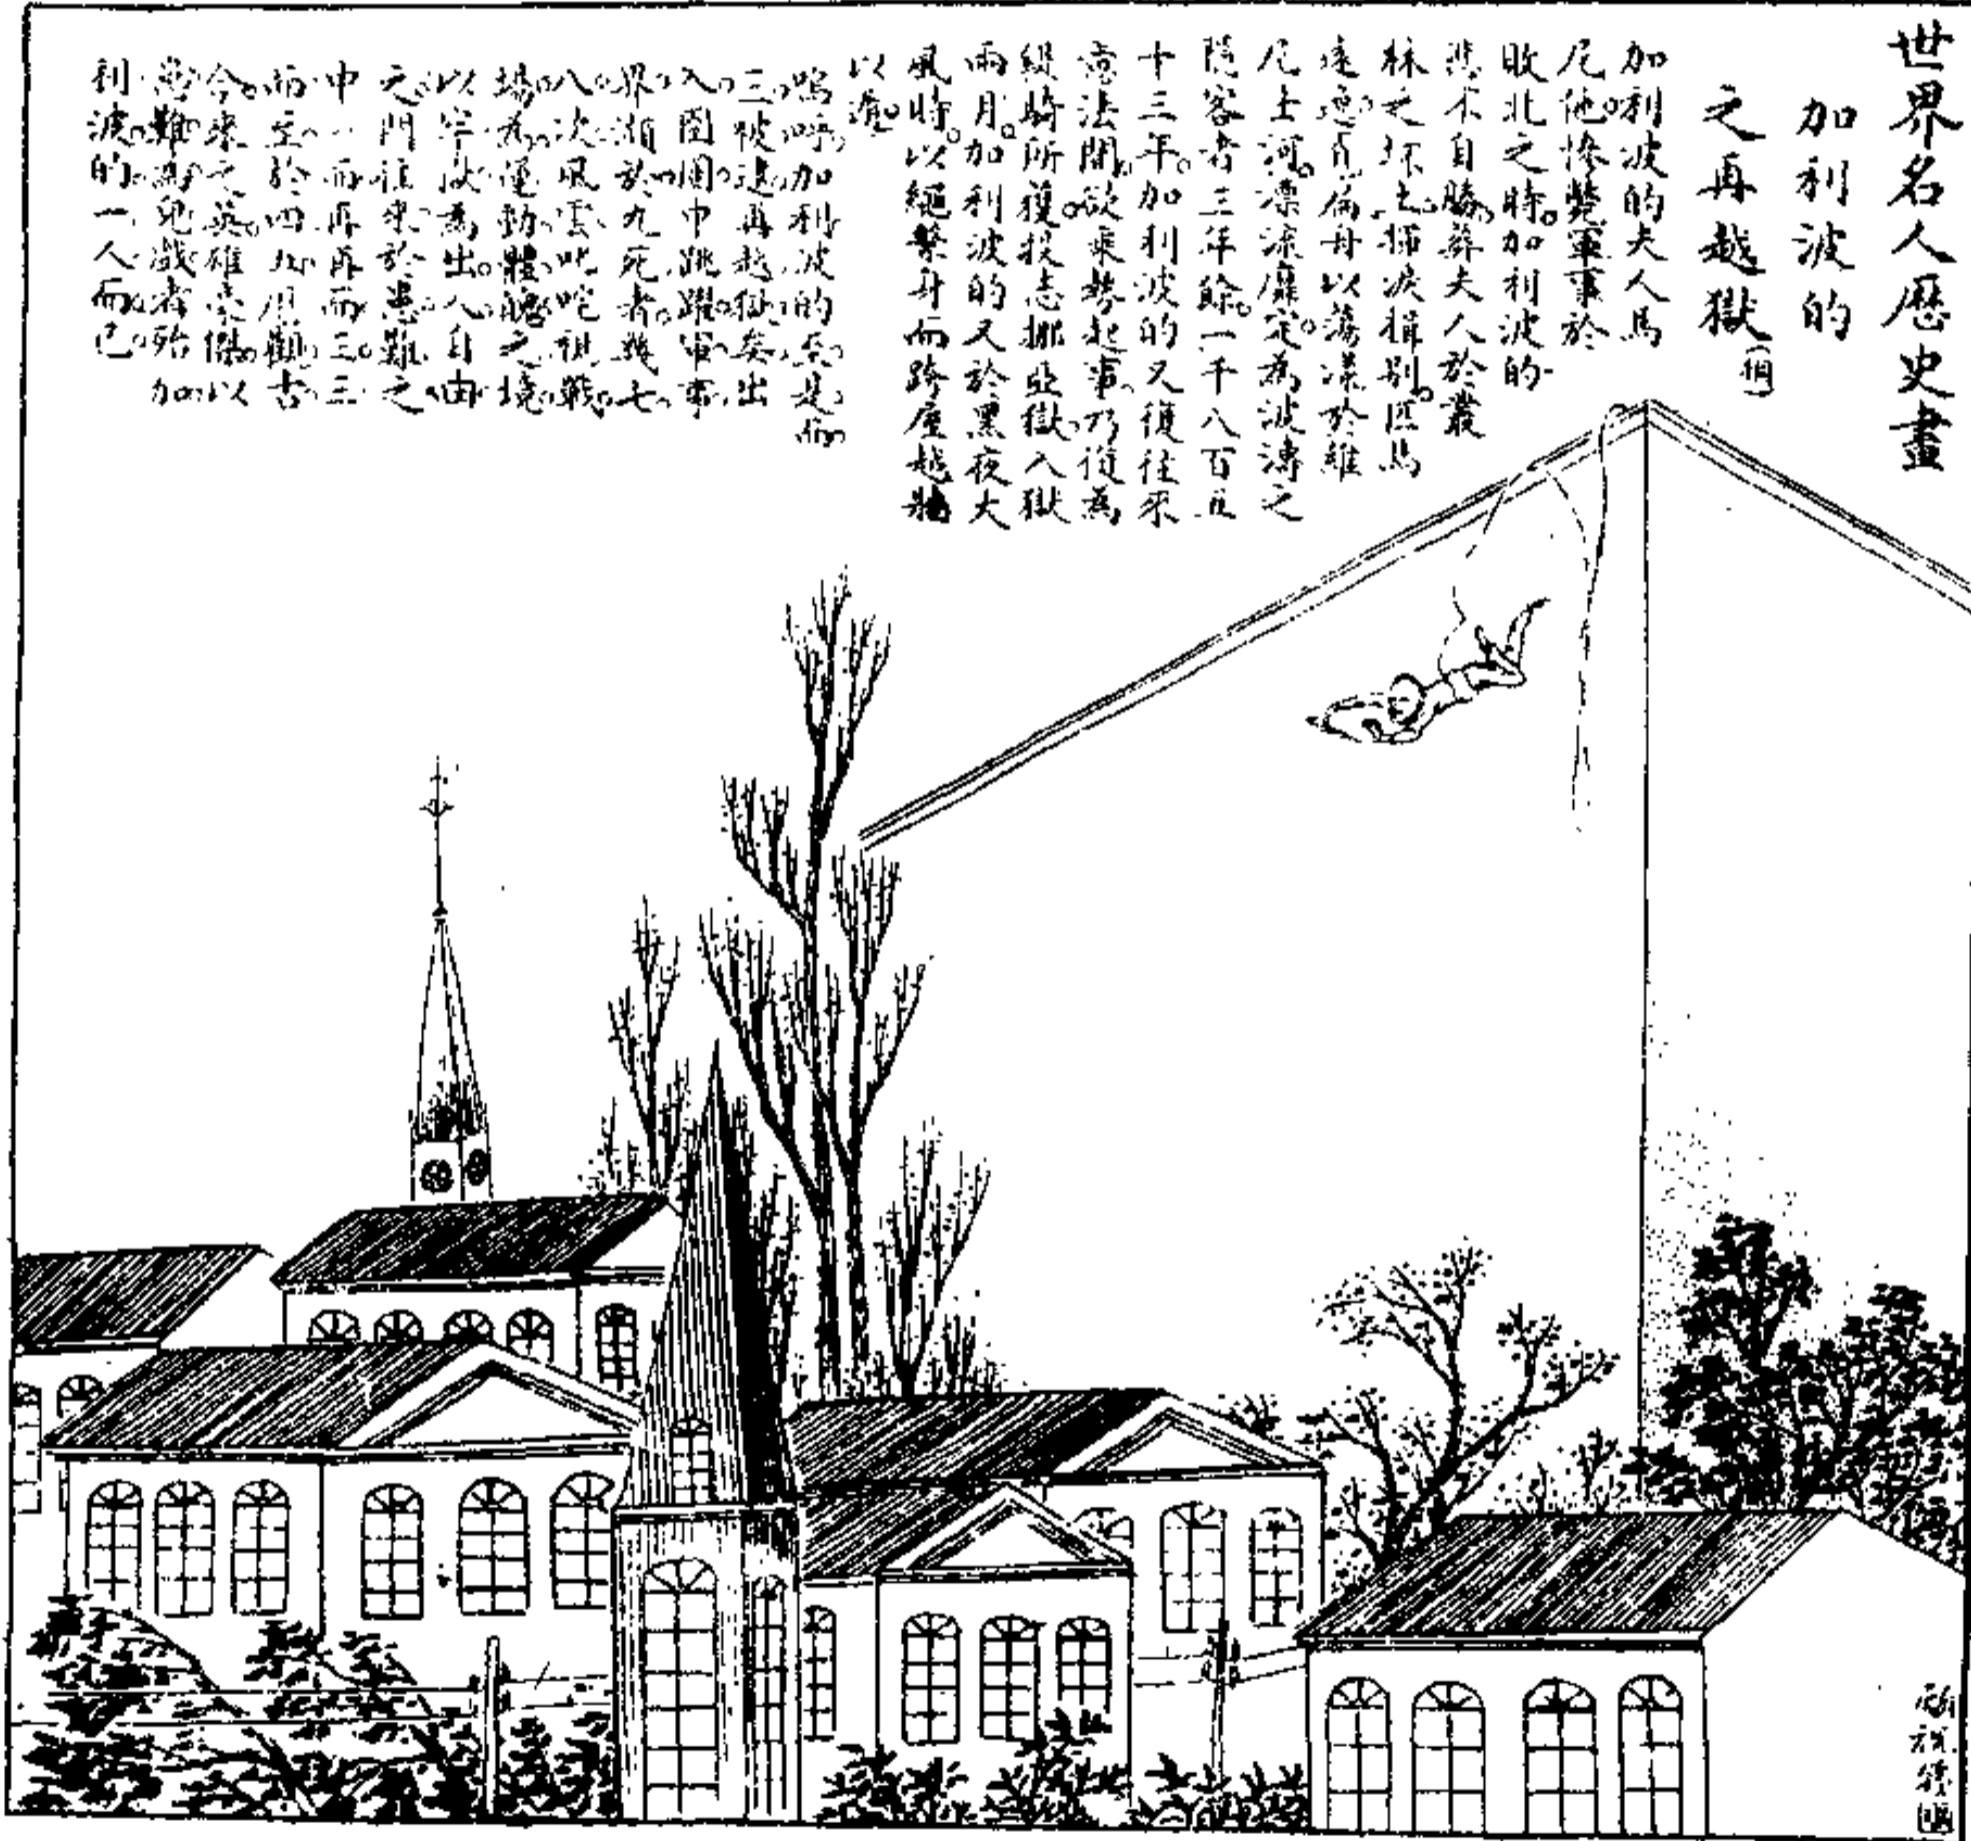 世界名人歷史畫
加利波的
之再越獄
加利波的夫人馬
尼他慘斃軍事於
敗北之時。加利波的
悲不自勝。葬夫人於叢
林之坏土揮淚揖別。匹馬
遠遁。具扁舟以蕩漾於維
尼士河。漂流靡定。為波濤之
隱客者三年餘。一千八百五
十三年。加利波的又復往來
意法間。欲乘勢起事。乃復為
緹騎所獲投志挪亞獄。入獄
兩月。加利波的又於黑夜大
風時。以繩繫身而跨屋越牆
以遁。
嗚呼。加利波的至是而
三被逮再越獄矣出
入囹圄中跳躍軍事
界瀕於九死者幾七
八次風雲叱咤視戰
場為運動體魄之境
以牢獄為出入自由
之門往來於患難之
中一而再再而三三
而至於四五用觀古
今來之英雄豪傑以
患難為兒戲者殆加
利波的一人而已